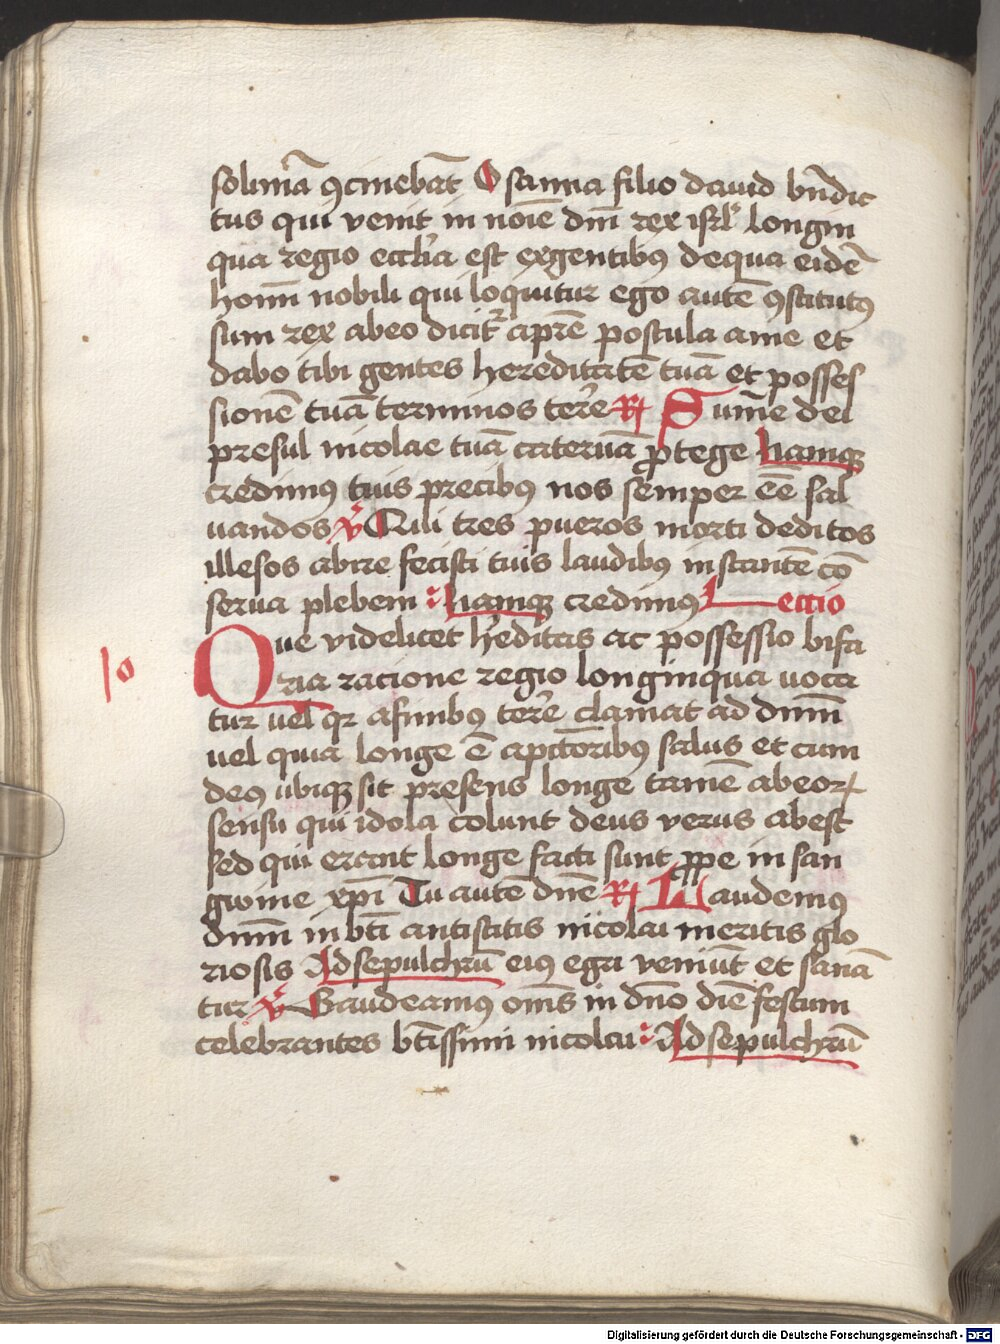 solimā ꝯcinebāt Osanna filio dauid bn̄dic
tus qui venit in noīe dnī rex isrl̕ longin
qua regio ecclīa est exgentibꝯ dequa eidē
homī nobili qui loquitur ego autē ꝯstitutꝯ
sum rex abeo dicit̕ aprē postula ame et
dabo tibi gentes hereditatē tuā et posses
sionē tuā terminos terre ℟ Summe dei
presul nicolae tuā cateruā ꝓtege Namqꝫ
credimꝯ tuis precibꝯ nos semper eē sal
uandos ℣ Qui tres pueros morti deditos
illesos abire fecisti tuis laudibꝯ instantē cō
serua plebem : Namqꝫ credimꝯ Lectio
Que videlicet h̕editas ac possessio bifa
ria racione regio longinqua uoca
tur uel qꝛ afinibꝯ terre clamat ad dnm̄
uel quia longe ē apctōribꝯ salus et cum
deꝯ ubiqꝫ sit presens longe tamē abeoꝝ
sensu qui idola colunt deus verus abest
sed qui erant longe facti sunt ꝓpe in san
gwine xpī Tu autē dnē ℟ Laudemꝯ
dnm̄ in btī antistitis nicolai meritis glo
riosis Adsepulchrū eiꝯ egri veniūt et sanā
tur ℣ Gaudeamꝯ omīs in dnō diē festum
celebrantes btīssimi nicolai : Adsepulchrū
Digitalisierung gefördert durch die Deutsche Forschungsgemeinschaft - DFG